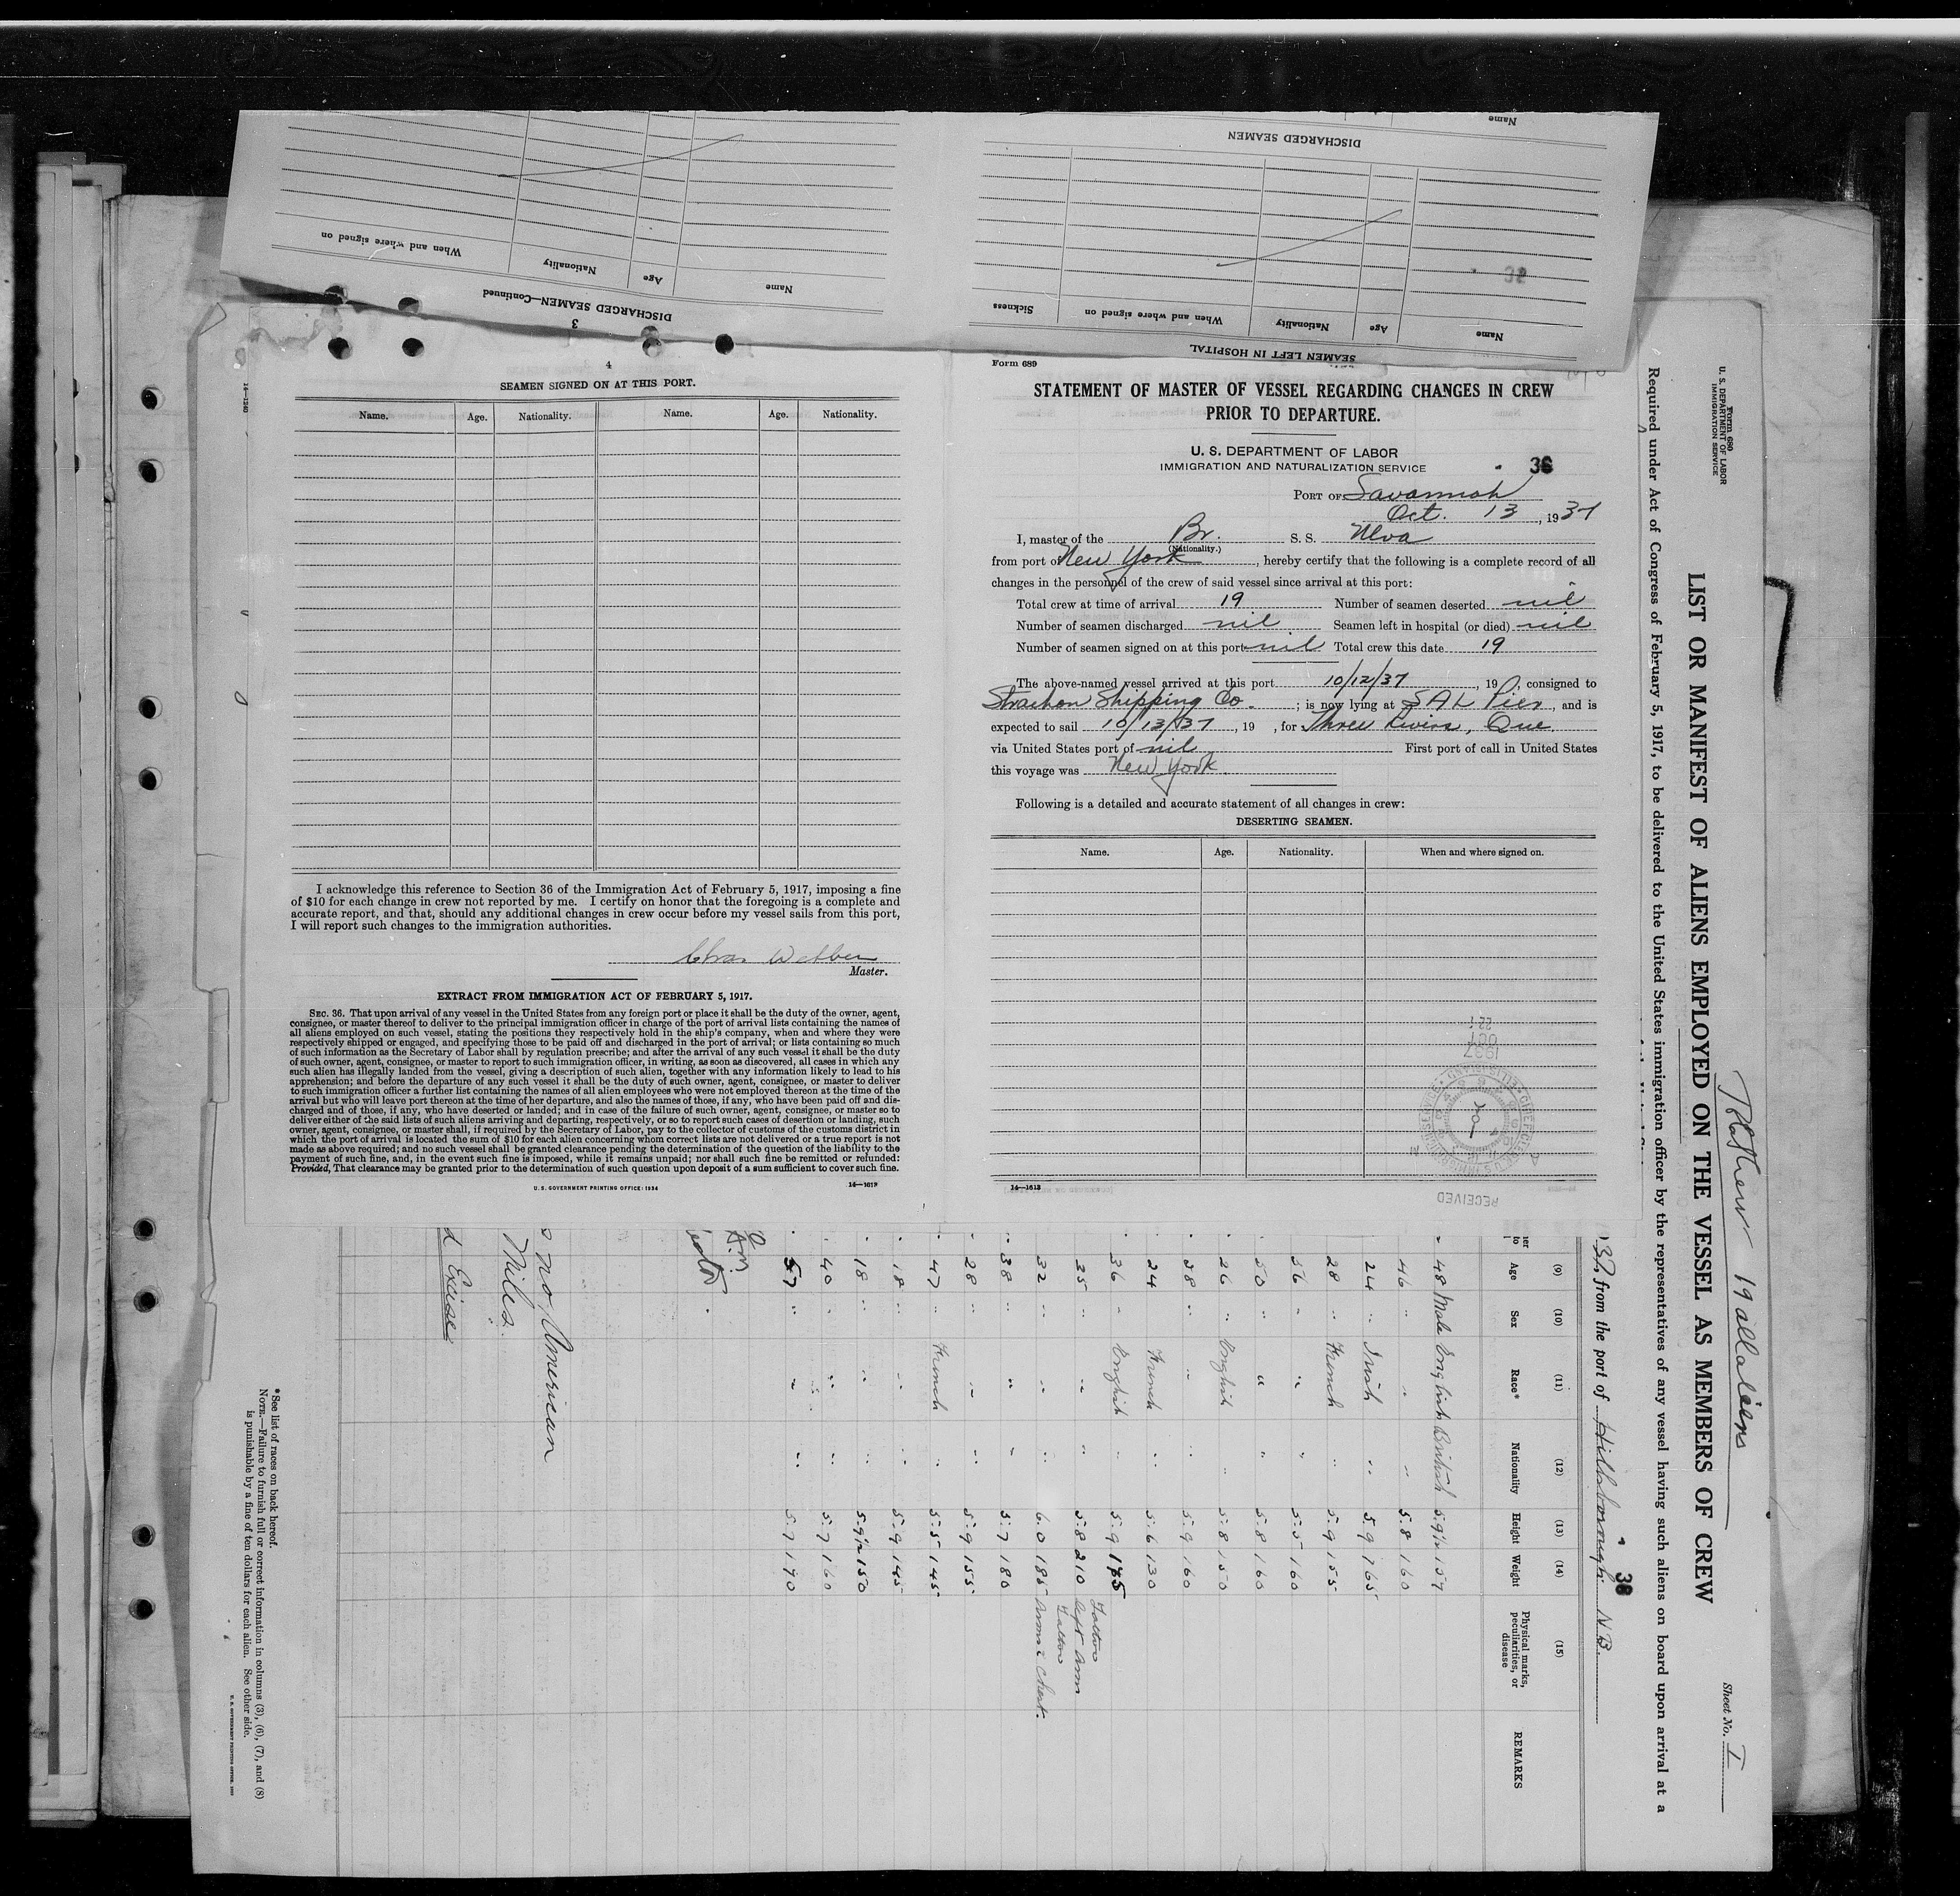 Name
DISCHARGED SEAMEN
Name
Age
Nationality
When and where signed on
Sickness
SEAMEN LEFT IN HOSPITAL
Name
Age
Nationality
When and where signed on
DISCHARGED SEAMEN—Continued
3
4
SEAMEN SIGNED ON AT THIS PORT.
Name. Age. Nationality. Name. Age. Nationality.
I acknowledge this reference to Section 36 of the Immigration Act of February 5, 1917, imposing a fine
of $10 for each change in crew not reported by me. I certify on honor that the foregoing is a complete and
accurate report, and that, should any additional changes in crew occur before my vessel sails from this port,
I will report such changes to the immigration authorities.
Chas Webber
Master.
EXTRACT FROM IMMIGRATION ACT OF FEBRUARY 5, 1917.
SEC. 36. That upon arrival of any vessel in the United States from any foreign port or place it shall be the duty of the owner, agent,
consignee, or master thereof to deliver to the principal immigration officer in charge of the port of arrival lists containing the names of
all aliens employed on such vessel, stating the positions they respectively hold in the ship's company, when and where they were
respectively shipped or engaged, and specifying those to be paid off and discharged in the port of arrival; or lists containing so much
of such information as the Secretary of Labor shall by regulation prescribe; and after the arrival of any such vessel it shall be the duty
of such owner, agent, consignee, or master to report to such immigration officer, in writing, as soon as discovered, all cases in which any
such alien has illegally landed from the vessel, giving a description of such alien, together with any information likely to lead to his
apprehension; and before the departure of any such vessel it shall be the duty of such owner, agent, consignee, or master to deliver
to such immigration officer a further list containing the names of all alien employees who were not employed thereon at the time of the
arrival but who will leave port thereon at the time of her departure, and also the names of those, if any, who have been paid off and dis-
charged and of those, if any, who have deserted or landed; and in case of the failure of such owner, agent, consignee, or master so to
deliver either of the said lists of such aliens arriving and departing, respectively, or so to report such cases of desertion or landing, such
owner, agent, consignee, or master shall, if required by the Secretary of Labor, pay to the collector of customs of the customs district in
which the port of arrival is located the sum of $10 for each alien concerning whom correct lists are not delivered or a true report is not
made as above required; and no such vessel shall be granted clearance pending the determination of the question of the liability to the
payment of such fine, and, in the event such fine is imposed, while it remains unpaid; nor shall such fine be remitted or refunded:
Provided, That clearance may be granted prior to the determination of such question upon deposit of a sum sufficient to cover such fine.
U. S. GOVERNMENT PRINTING OFFICE: 1934
14—1613
Form 689
STATEMENT OF MASTER OF VESSEL REGARDING CHANGES IN CREW
PRIOR TO DEPARTURE.
U. S. DEPARTMENT OF LABOR
IMMIGRATION AND NATURALIZATION SERVICE
36
PORT OF Savannah
Oct. 13, 1937
I, master of the Br. S. S. Nlva
(Nationality.)
from port of New York, hereby certify that the following is a complete record of all
changes in the personnel of the crew of said vessel since arrival at this port:
Total crew at time of arrival 19 Number of seamen deserted nil
Number of seamen discharged nil Seamen left in hospital (or died) nil
Number of seamen signed on at this port nil Total crew this date 19
The above-named vessel arrived at this port 10/12/37, 19 , consigned to
Strachan Shipping Co. ; is now lying at SAL Pier, and is
expected to sail 10/13/37, 19 , for Three Rivers, Que.
via United States port of nil First port of call in United States
this voyage was New York
Following is a detailed and accurate statement of all changes in crew:
DESERTING SEAMEN.
Name. Age. Nationality. When and where signed on.
14—1613
RECEIVED
1937
OCT
Form 680
U. S. DEPARTMENT OF LABOR
IMMIGRATION SERVICE
19 all aliens
Sheet No. I
LIST OR MANIFEST OF ALIENS EMPLOYED ON THE VESSEL AS MEMBERS OF CREW
Required under Act of Congress of February 5, 1917, to be delivered to the United States immigration officer by the representatives of any vessel having such aliens on board upon arrival at a
from the port of Hillsborough N.B.
38
(9) (10) (11) (12) (13) (14) (15)
Age Sex Race* Nationality Height Weight Physical marks, peculiarities, or disease REMARKS
48 Male English British 5.9½ 157
46 " " " 5.8 160
24 " Irish " 5.9 165
28 " French " 5.9 155
56 " " " 5.5 160
50 " " " 5.8 160
26 " English " 5.8 150
38 " " " 5.9 160
24 " French " 5.6 130
36 " English " 5.9 175
35 " " " 5.8 210 Tattoo left arm
32 " " " 6.0 185 Tattoo Arms & Chest.
38 " " " 5.7 180
28 " " " 5.9 155
47 " French " 5.5 145
18 " " " 5.9 145
18 " " " 5.9½ 150
40 " " " 5.7 160
57 " " " 5.7 170
no American
Miles.
Excise
*See list of races on back hereof.
NOTE.—Failure to furnish full or correct information in columns (3), (6), (7), and (8)
is punishable by a fine of ten dollars for each alien. See other side.